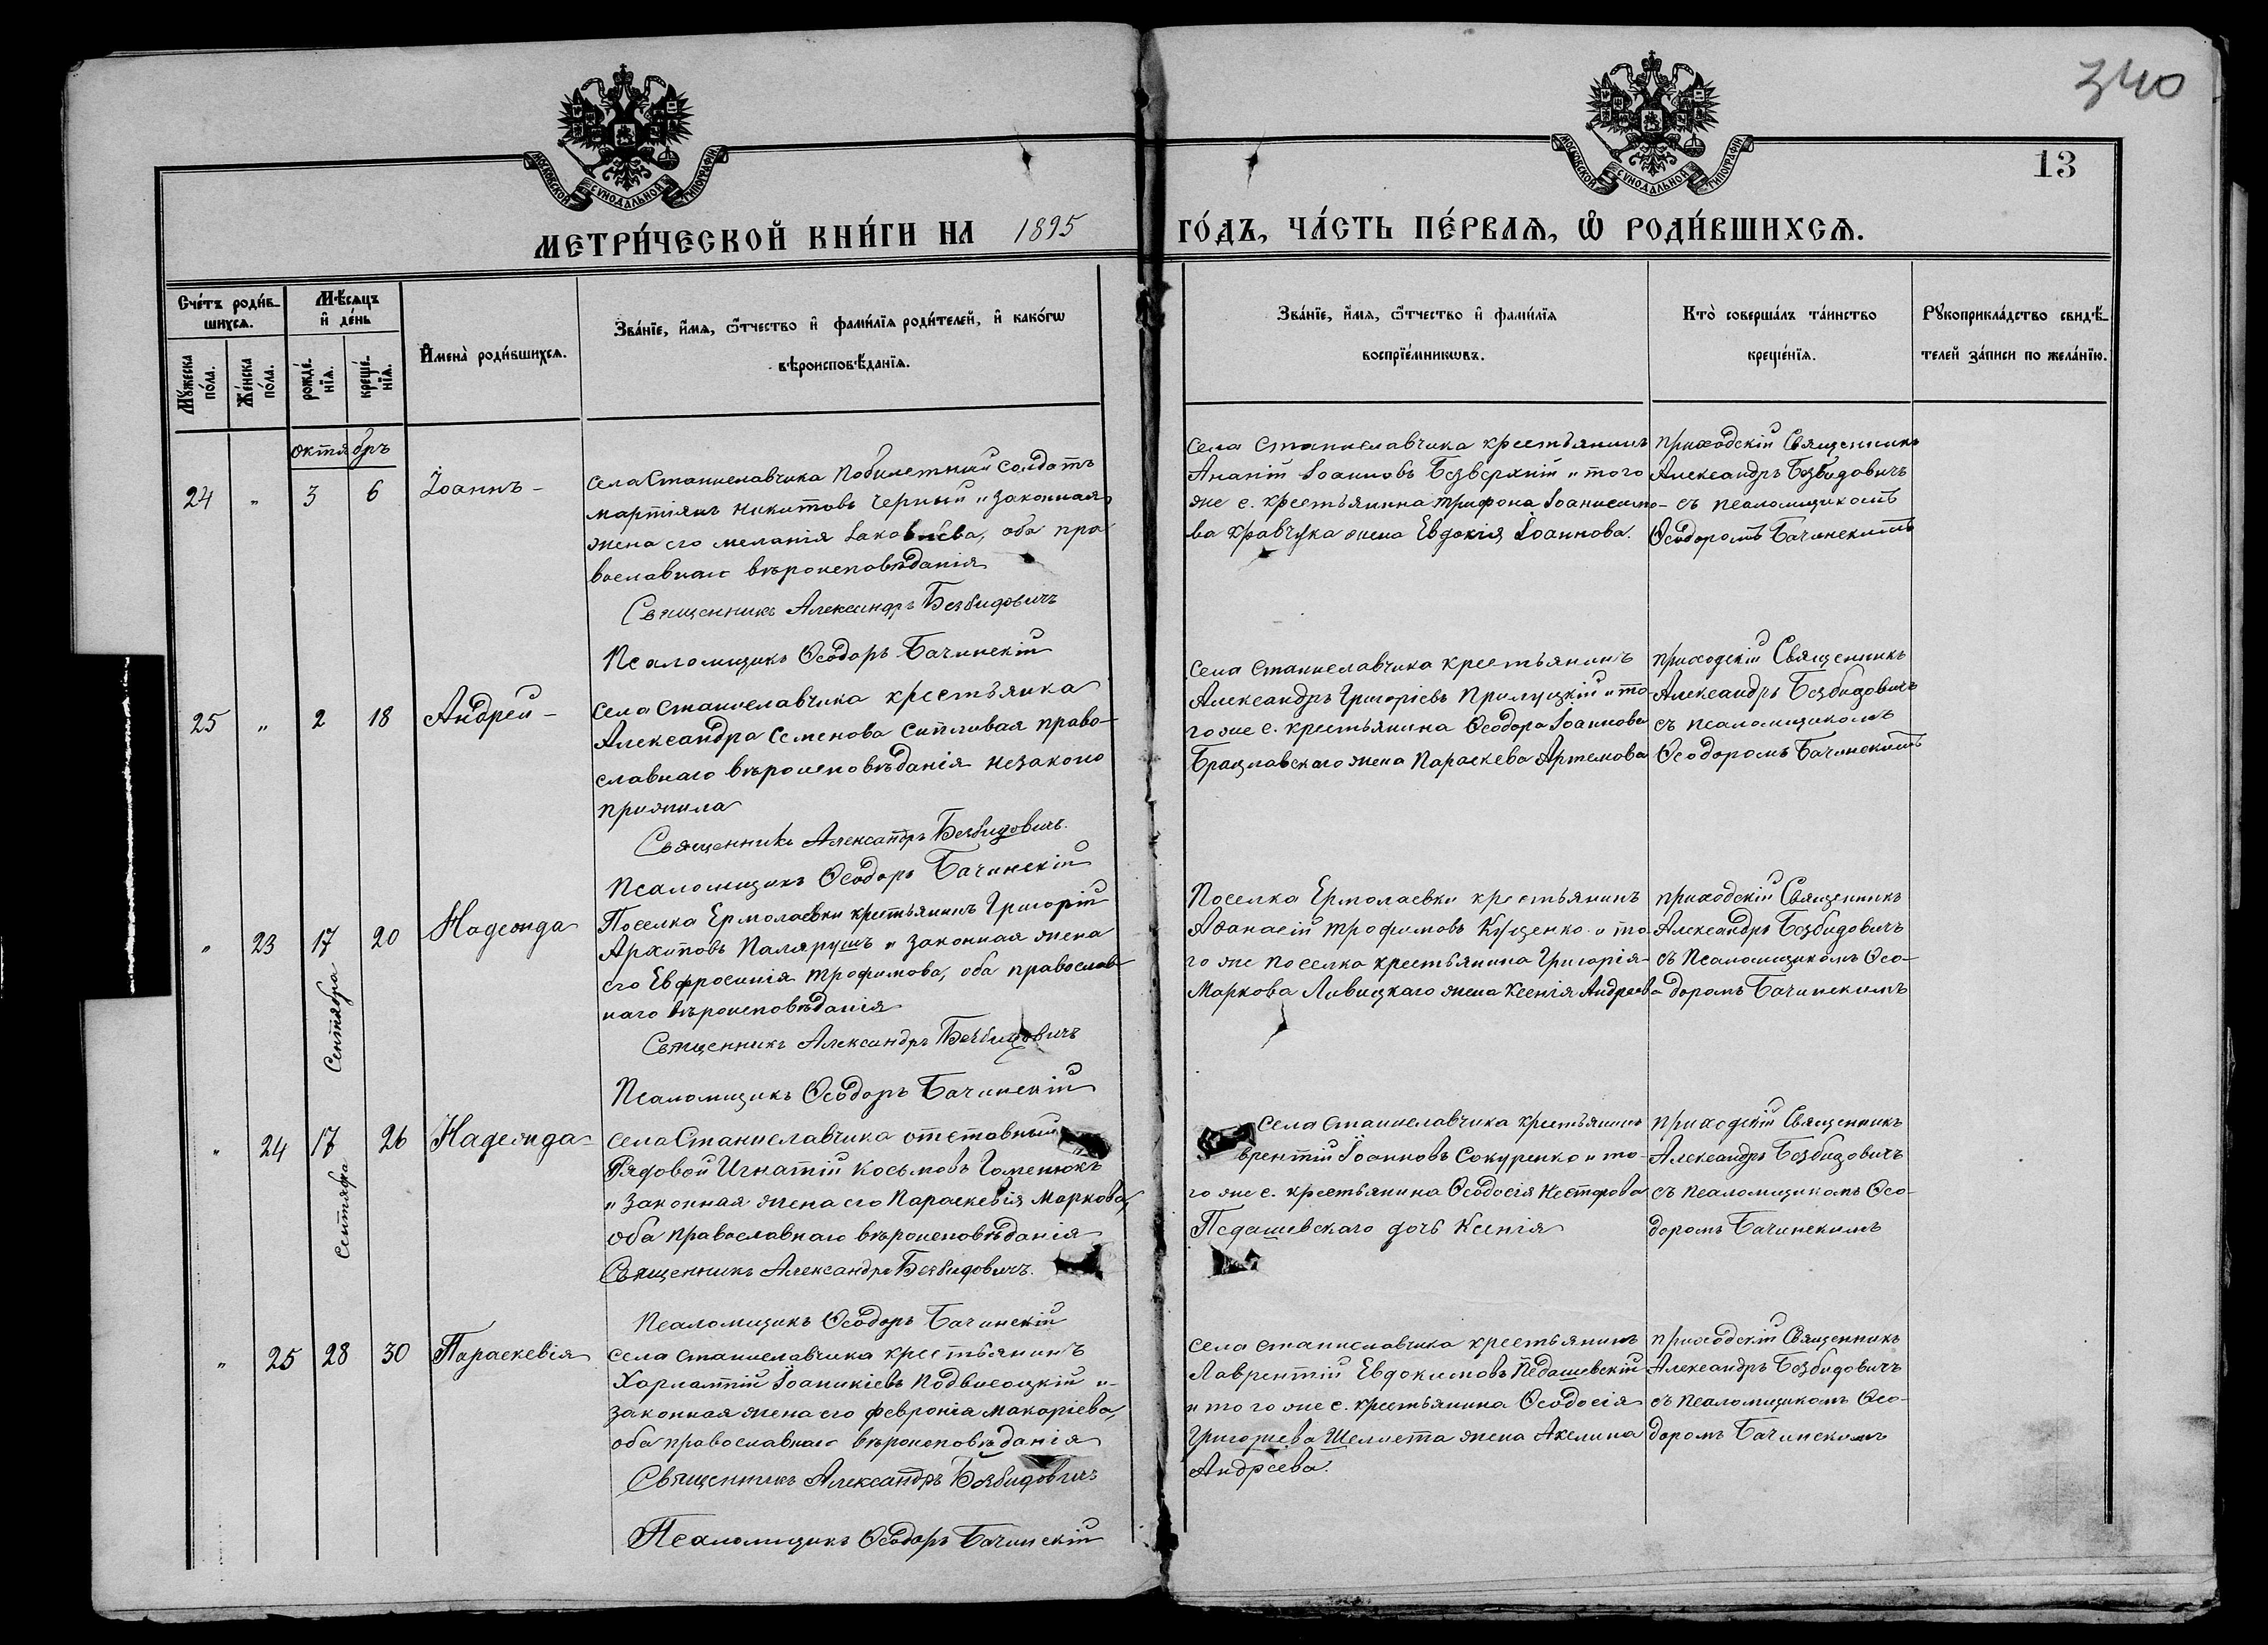 340
13
МОСКОВСКОЙ СУНОДАЛЬНОЙ ТИПОГРАФІИ
МОСКОВСКОЙ СУНОДАЛЬНОЙ ТИПОГРАФІИ
МЕТРИ́ЧЕСКОЙ КНИ́ГИ НА 1895 ГО́ДЪ, ЧА́СТЬ ПЕ́РВАѦ, Ѡ РОДИ́ВШИХСѦ.
Сче́тъ роди́в-
шихсѧ.
Мꙋжеска по́ла.
Же́нска по́ла.
Мѣ́сѧцъ
и҆ де́нь
рожде́нїѧ.
креще́нїѧ.
И҆мена̀ роди́вшихсѧ.
Зва́нїе, и҆́мѧ, ѻ҆́тчество и҆ фами́лїѧ роди́телей, и҆ како́гѡ
вѣроисповѣ́данїѧ.
Зва́нїе, и҆́мѧ, ѻ҆́тчество и҆ фами́лїѧ
воспрїе́мникѡвъ.
Кто̀ соверша́лъ та́инство
креще́нїѧ.
Рꙋкоприкла́дство свидѣ́-
телей за́писи по жела́нїю.
октябрь
24 „ 3 6 Іоаннъ –
села Станиславчика Побилетный солдатъ
мартіянъ никитовъ Черный и законная
жена его меланія Іаковлева, оба пра
вославнаго вѣроисповѣданія
Священникъ Александръ Безвидовичъ
Псаломщикъ Ѳеодоръ Бачинскій
села Станиславчика крестьянинъ
Ананій Іоанновъ Безверхній и того
же с. крестьянина Трифона
ва Кравчука жена Евдокія Іоаннова.
приходскій Священникъ
Александръ Безвидовичъ
съ псаломщикомъ
Ѳеодоромъ Бачинскимъ
25 „ 2 18 Андрей –
села Станиславчика крестьянка
Александра Семенова Ситливая право-
славнаго вѣроисповѣданія незаконо
прижила
Священникъ Александръ Безвидовичъ.
Псаломщикъ Ѳеодоръ Бачинскій
села Станиславчика крестьянинъ
Александръ Григоріевъ Прилуцкій и то-
гоже с. крестьянина Ѳеодора Іоаннова
Брацлавскаго жена Параскева Артемова
приходскій Священникъ
Александръ Безвидовичъ
съ псаломщикомъ
Ѳеодоромъ Бачинскимъ
„ 23 17 Сентября 20 Надежда
Поселка Ермолаевки крестьянинъ Григорій
Архиповъ Палярушъ и законная жена
его Евфросинія трофимова, оба православ
наго вѣроисповѣданія
Священникъ Александръ Безвидовичъ
Псаломщикъ Ѳеодоръ Бачинскій
Поселка Ермолаевки крестьянинъ
Аѳанасій трофимовъ Куценко и то
го же поселка крестьянина Григорія
Маркова Ливицкаго жена Ксенія Андреева
приходскій Священникъ
Александръ Безвидовичъ
съ Псаломщикомъ Ѳео-
доромъ Бачинскимъ
„ 24 17 Сентября 26 Надежда –
села Станиславчика отставный
Рядовой Игнатій Косьмовъ Гоменюкъ
и законная жена его Параскевія Маркова,
оба православнаго вѣроисповѣданія
Священникъ Александръ Безвидовичъ.
Псаломщикъ Ѳеодоръ Бачинскій
села Станиславчика крестьянинъ
врентій Іоанновъ Сокуренко и то-
го же с. крестьянина Ѳеодосія Несторова
Педашевскаго дочь Ксенія
приходскій Священникъ
Александръ Безвидовичъ
съ псаломщикомъ Ѳео-
доромъ Бачинскимъ
„ 25 28 30 Параскевія
села Станиславчика крестьянинъ
Харлампій Іоанникіевъ Подвисоцкій и
законная жена его феврокія макаріева,
оба православнаго вѣроисповѣданія
Священникъ Александръ Безвидовичъ
Псаломщикъ Ѳеодоръ Бачинскій
села Станиславчика крестьянинъ
Лаврентій Евдокимовъ Педашевскій
и того же с. крестьянина Ѳеодосія
Григорьева Шелиста жена Акелина
Андреева.
приходскій Священникъ
Александръ Безвидовичъ
съ псаломщикомъ Ѳео-
доромъ Бачинскимъ